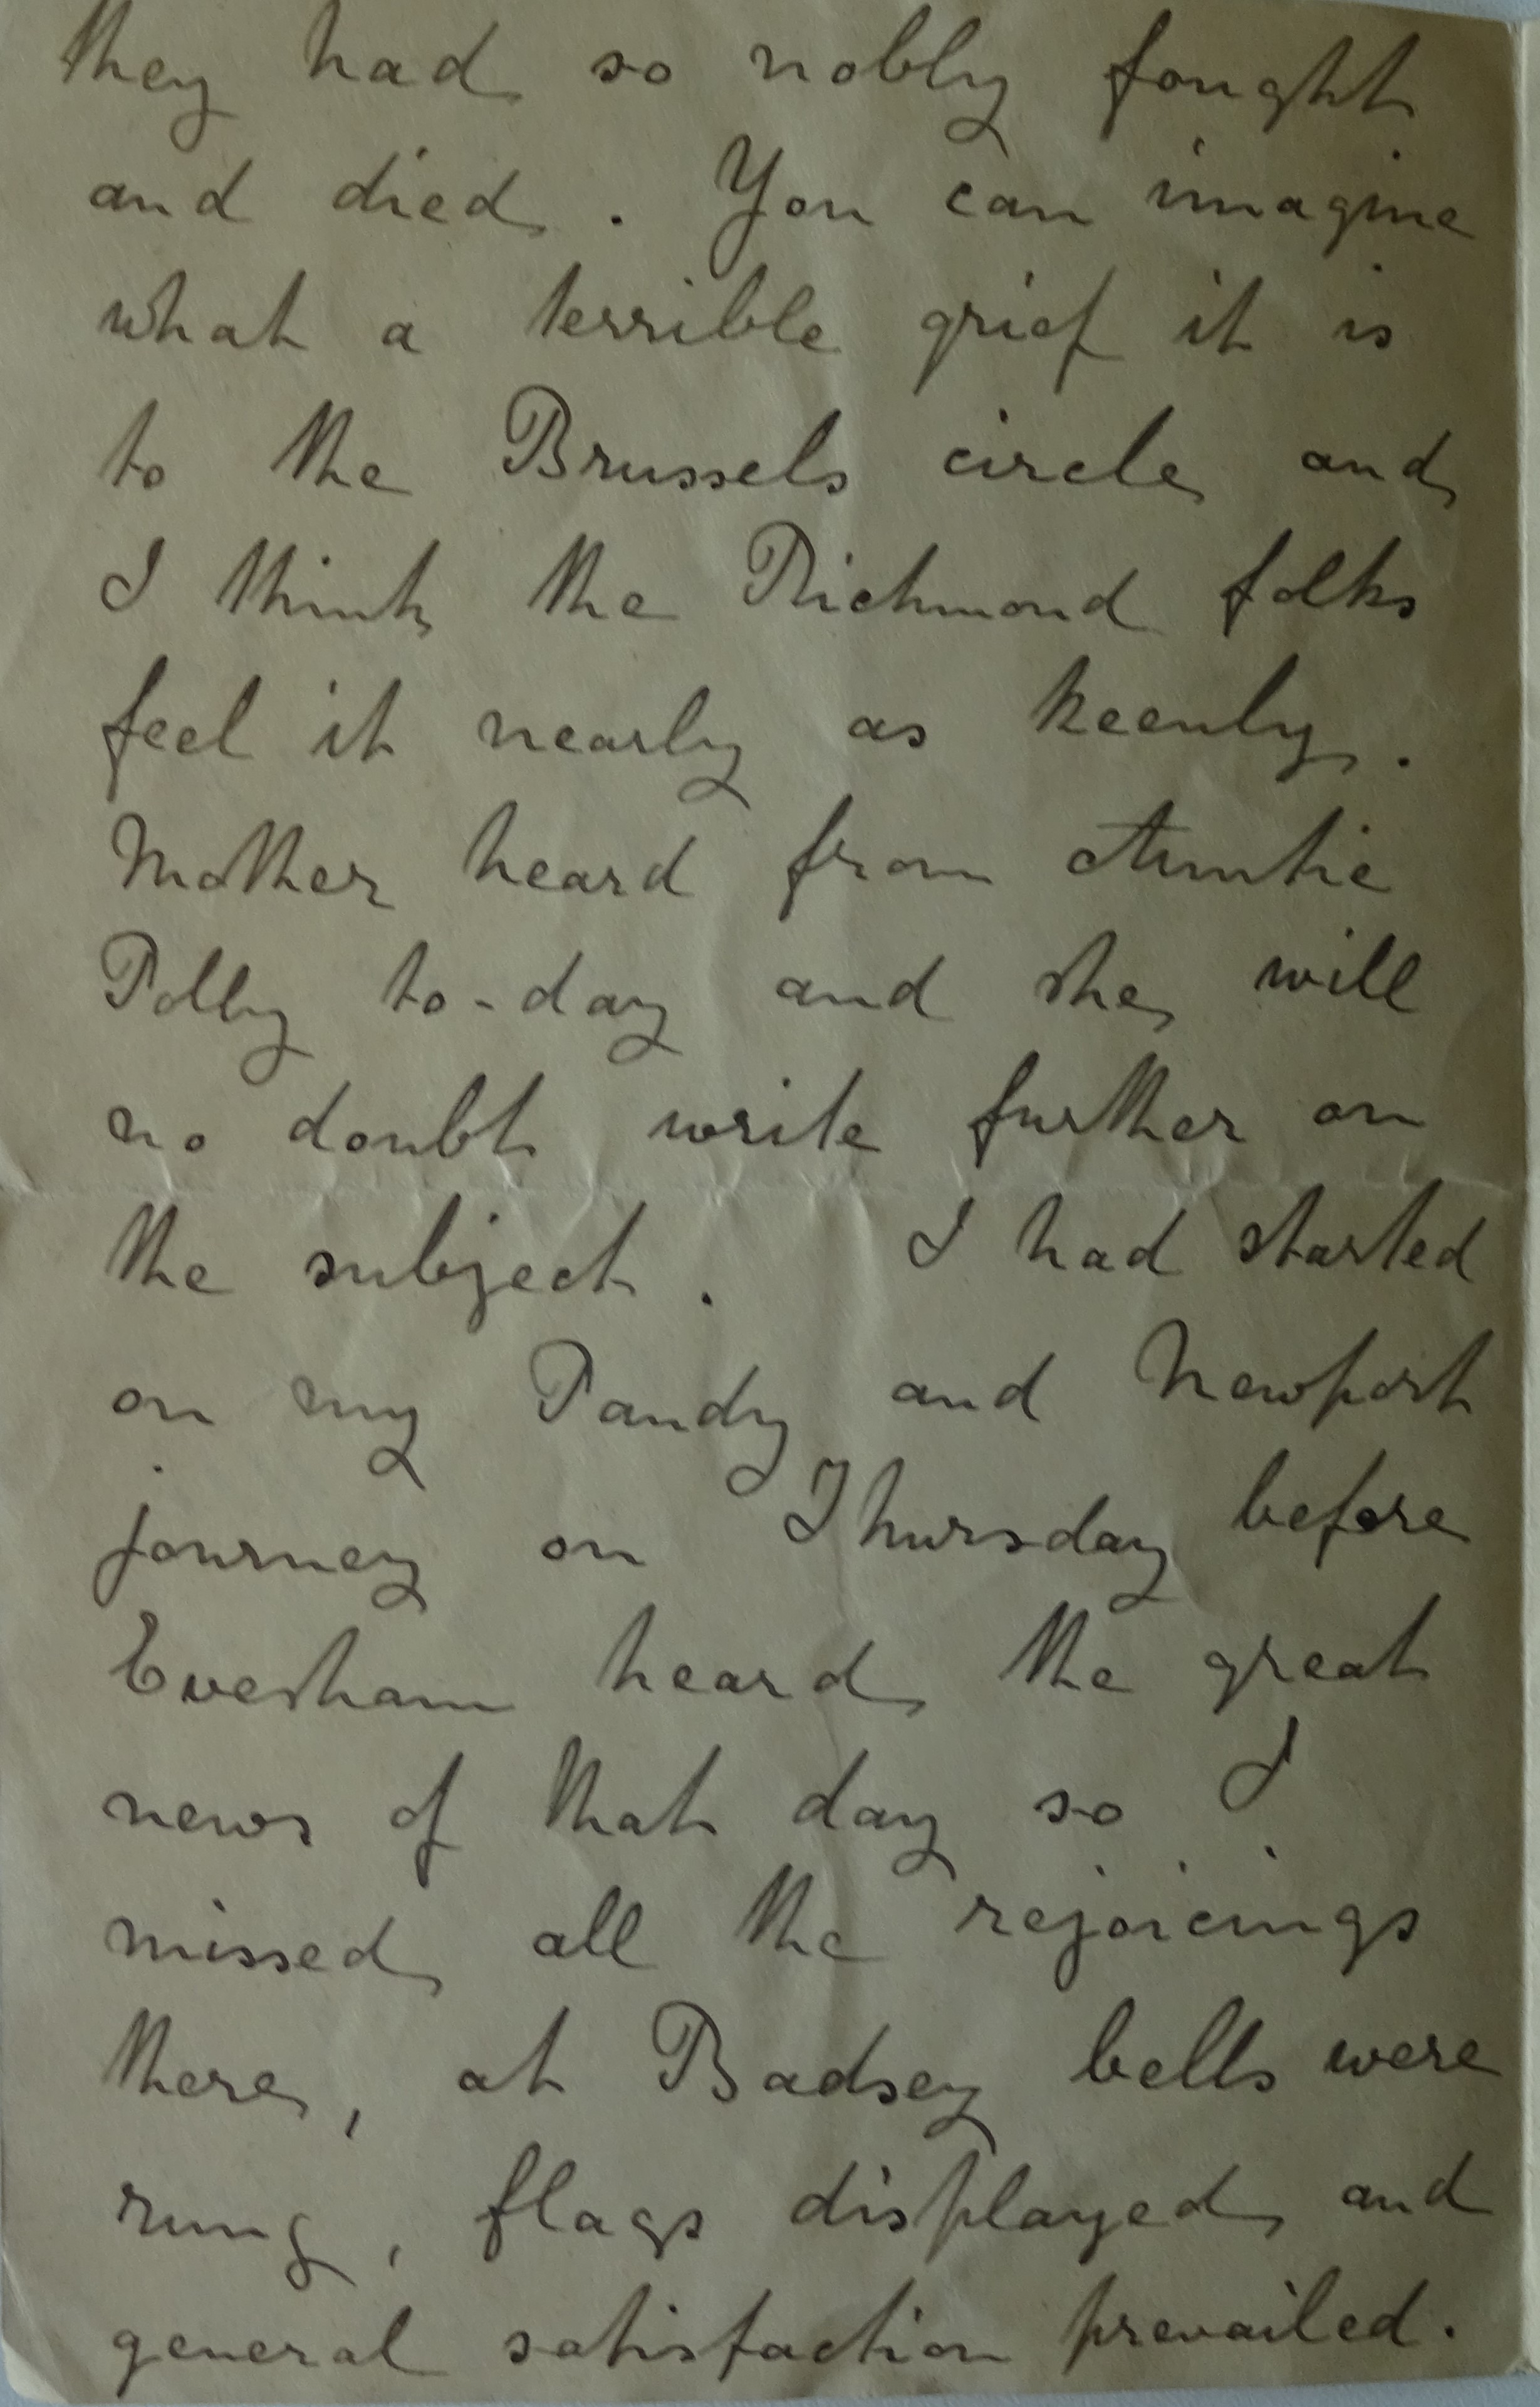 they had so nobly fought
and died. You can imagine
what a terrible grief it is
to the Brussels circle and
I think the Richmond folks
feel it nearly as keenly.
Mother heard from Auntie
Polly to-day and she will
no doubt write further on
the subject. I had started
on my Pandy and Newport
journey on Thursday before
Evesham heard the great
news of that day so I
missed all the rejoicings
there, at Badsey bells were
rung, flags displayed and
general satisfaction prevailed.